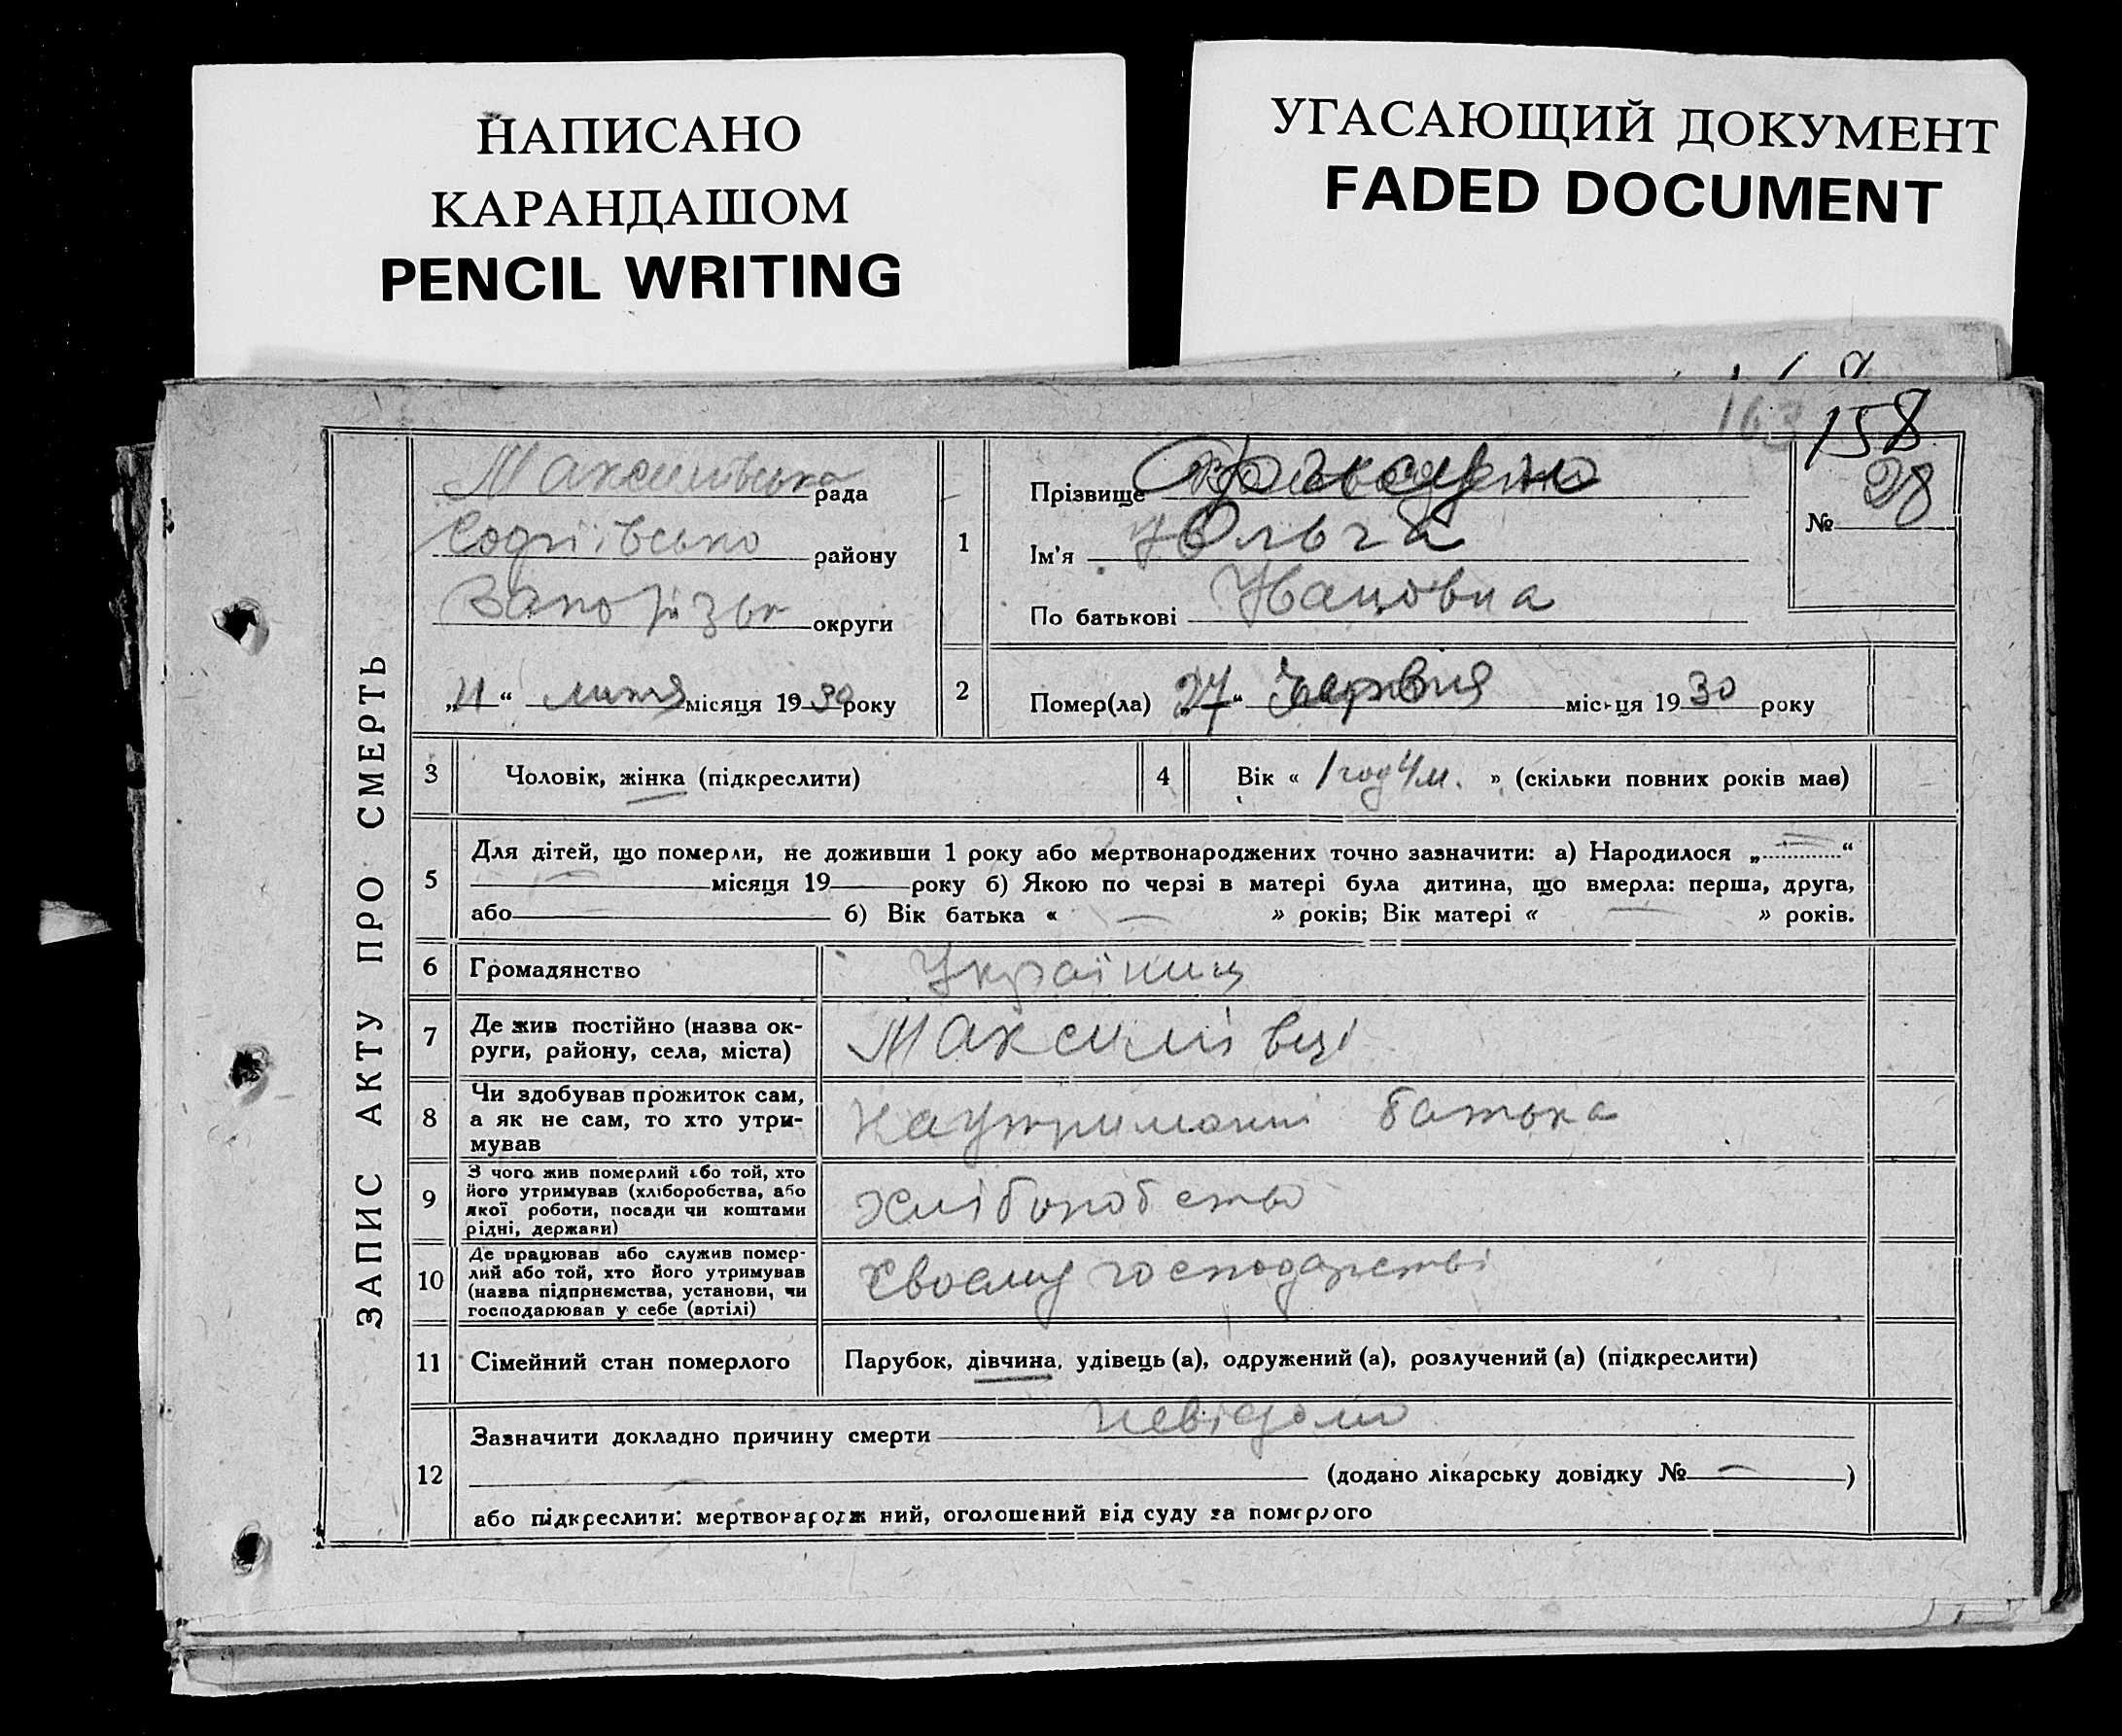 НАПИСАНО
КАРАНДАШОМ
PENCIL WRITING
УГАСАЮЩИЙ ДОКУМЕНТ
FADED DOCUMENT
163 158
ЗАПИС АКТУ ПРО СМЕРТЬ
рада
району
округи
„11“ липня місяця 1930 року
1
Прізвище
Ім'я Ольга
По батькові
№ 28
2
Помер(ла) „27“ Червня місяця 1930 року
3 Чоловік, жінка (підкреслити)
4 Вік « 1 год 4 м. » (скільки повних років має)
5 Для дітей, що померли, не доживши 1 року або мертвонароджених точно зазначити: а) Народилося „ — “
— місяця 19 року б) Якою по черзі в матері була дитина, що вмерла: перша, друга,
або — б) Вік батька « — » років; Вік матері « — » років.
6 Громадянство
Україниц
7 Де жив постійно (назва ок-
руги, району, села, міста)
Максимівці
8 Чи здобував прожиток сам,
а як не сам, то хто утри-
мував
на утриманні батька
9 З чого жив померлий або той, хто
його утримував (хліборобства, або
якої роботи, посади чи коштами
рідні, держави)
хліборобство
10 Де працював або служив помер-
лий або той, хто його утримував
(назва підприємства, установи, чи
господарював у себе (артілі)
Своєму господарстві
11 Сімейний стан померлого
Парубок, дівчина, удівець (а), одружений (а), розлучений (а) (підкреслити)
12 Зазначити докладно причину смерти невідомо
(додано лікарську довідку № — )
або підкреслити: мертвонародж ний, оголошений від суду за померлого